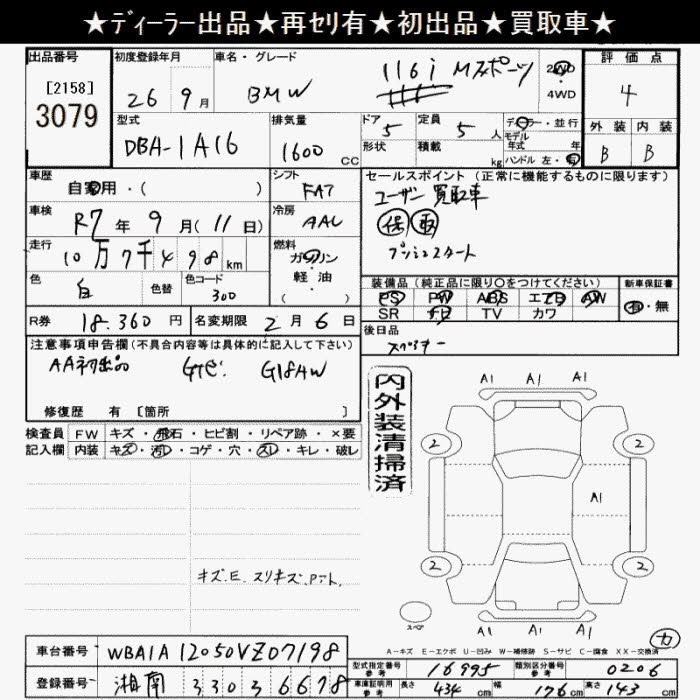 ★ディーラー出品★再セリ有★初出品★買取車★
出品番号 初度登録年月 車名・グレード 評価点
[2158] 3079 26年 9月 BMW 116i Mスポーツ 2WD・4WD 4
型式 排気量 ドア 定員 ディーラー・並行 外装 内装
DBA-1A16 1600cc 5 5人 モデル年式 年 B B
形状 積載 kg ハンドル 左・右
車歴 自家用・( ) シフト FA7 セールスポイント(正常に機能するものに限ります)
車検 R7年 9月(11日) 冷房 AAC ユーザー買取車
保 取
走行 10万7千498km 燃料 ガソリン・軽油・( ) プッシュスタート
色 白 色替 色コード 300 装備品(純品に限り○をつけてください) 新車保証書
PS PW ABS エアB AW 有・無
SR TV カワ
R券 18,360円 名変期限 2月6日 後日品
注意事項申告欄(不具合内容等は具体的に記入して下さい) スペアキー
AA初出品 G18AW
修復歴 有 [箇所 ]
内外装清掃済
検査員 FW キズ・飛石・ヒビ割・リペア跡・×要
記入欄 内装 キズ・汚レ・コゲ・穴・スレ・キレ・破レ
A1 A1 A1
2 2
A1
2 2
キズ.E.スリキズ.P
スペア
A1 A1 A1
A-キズ E-エクボ U-凹み W-補修跡 S-サビ C-腐食 XX-交換済
カ
車台番号 WBA1A12050VZ07198
型式指定番号 参考 16995 類別区分番号 参考 0206
登録番号 湘南 330 3 6678
車庫証明用 参考 長さ 434cm 幅 176cm 高さ 143cm